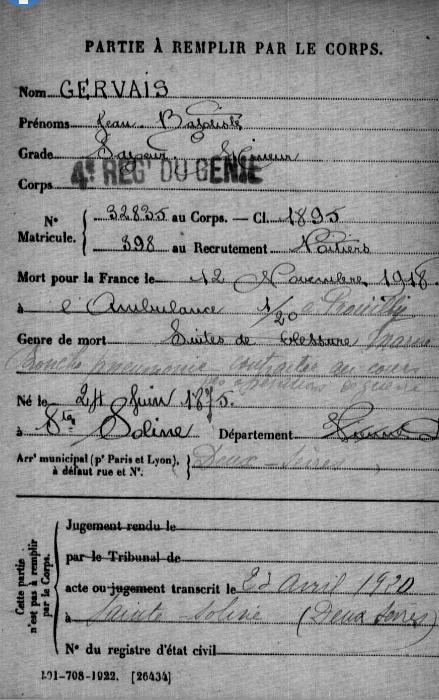 PARTIE À REMPLIR PAR LE CORPS.
Nom GERVAIS
Prénoms Jean Baptiste
Grade Sapeur Mineur
Corps 4e REGt DU GENIE
No Matricule. { 32835 au Corps. — Cl. 1895
898 au Recrutement Poitiers
Mort pour la France le 12 Novembre 1918
à l'Ambulance 1/20 à Marne
Genre de mort Suites de blessure
Broncho pneumonie contractée au cours
des opérations de guerre
Né le 24 Juin 1875.
à Ste Soline Département
Arrt municipal (pr Paris et Lyon), à défaut rue et No. } Deux-Sèvres
Cette partie n'est pas à remplir par le Corps.
Jugement rendu le
par le Tribunal de
acte ou jugement transcrit le 22 avril 1920
à Sainte-Soline (Deux Sèvres)
No du registre d'état civil
101-708-1922. [26434]